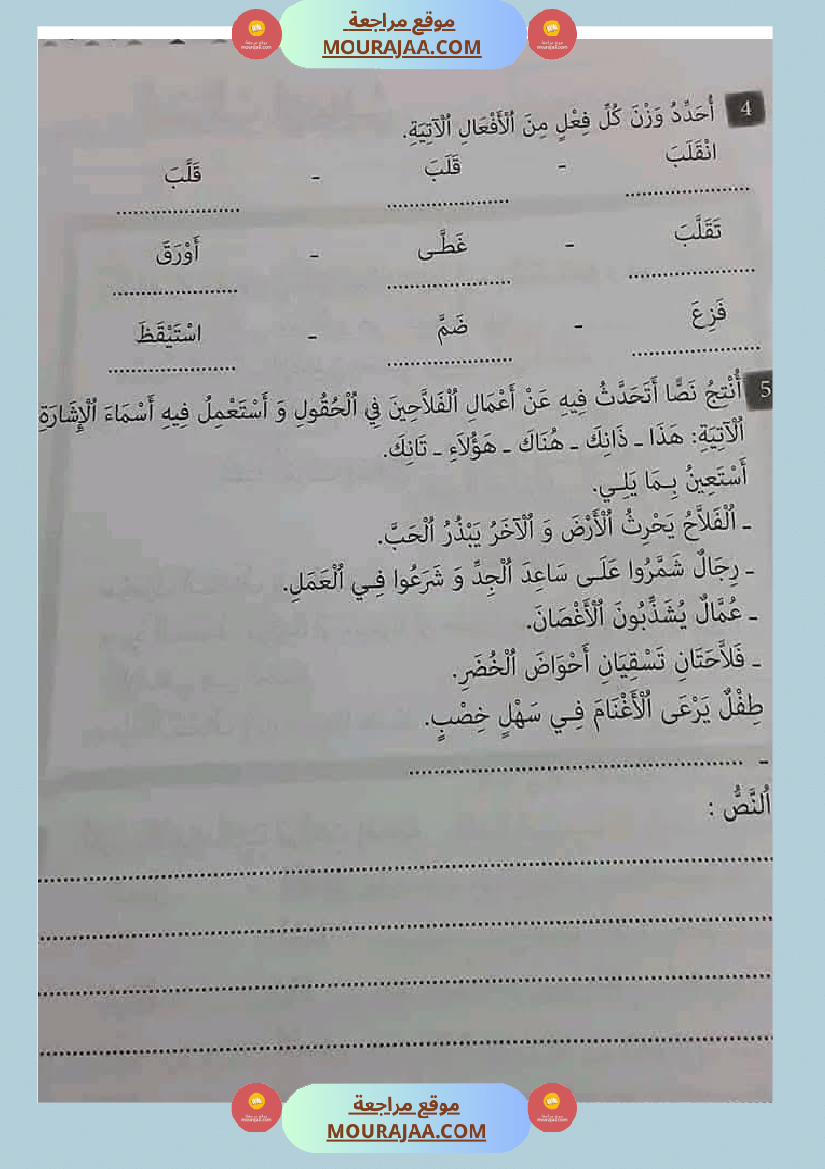 موقع مراجعة
MOURAJAA.COM
4 أُحَدِّدُ وَزْنَ كُلِّ فِعْلٍ مِنَ ٱلْأَفْعَالِ ٱلْآتِيَةِ.
انْقَلَبَ - قَلَبَ - قَلَّبَ
........................ ........................ ........................
تَقَلَّبَ - غَطَّى - أَوْرَقَ
........................ ........................ ........................
فَزِعَ - ضَمَّ - اسْتَيْقَظَ
........................ ........................ ........................
5 أُنْتِجُ نَصًّا أَتَحَدَّثُ فِيهِ عَنْ أَعْمَالِ ٱلْفَلاَّحِينَ فِي ٱلْحُقُولِ وَ أَسْتَعْمِلُ فِيهِ أَسْمَاءَ ٱلْإِشَارَةِ
ٱلْآتِيَةِ: هَذَا ـ ذَانِكَ ـ هُنَاكَ ـ هَؤُلاَءِ ـ تَانِكَ.
أَسْتَعِينُ بِـمَا يَلِـي.
ـ ٱلْفَلاَّحُ يَحْرِثُ ٱلْأَرْضَ وَ ٱلْآخَرُ يَبْذُرُ ٱلْحَبَّ.
ـ رِجَالٌ شَمَّرُوا عَلَـى سَاعِدَ ٱلْجِدِّ وَ شَرَعُوا فِـي ٱلْعَمَلِ.
ـ عُمَّالٌ يُشَذِّبُونَ ٱلْأَغْصَانَ.
ـ فَلاَّحَتَانِ تَسْقِيَانِ أَحْوَاضَ ٱلْخُضَرِ.
طِفْلٌ يَرْعَى ٱلْأَغْنَامَ فِـي سَهْلٍ خِصْبٍ.
ـ ............................................................
ٱلنَّصُّ :
................................................................................
................................................................................
................................................................................
................................................................................
موقع مراجعة
MOURAJAA.COM